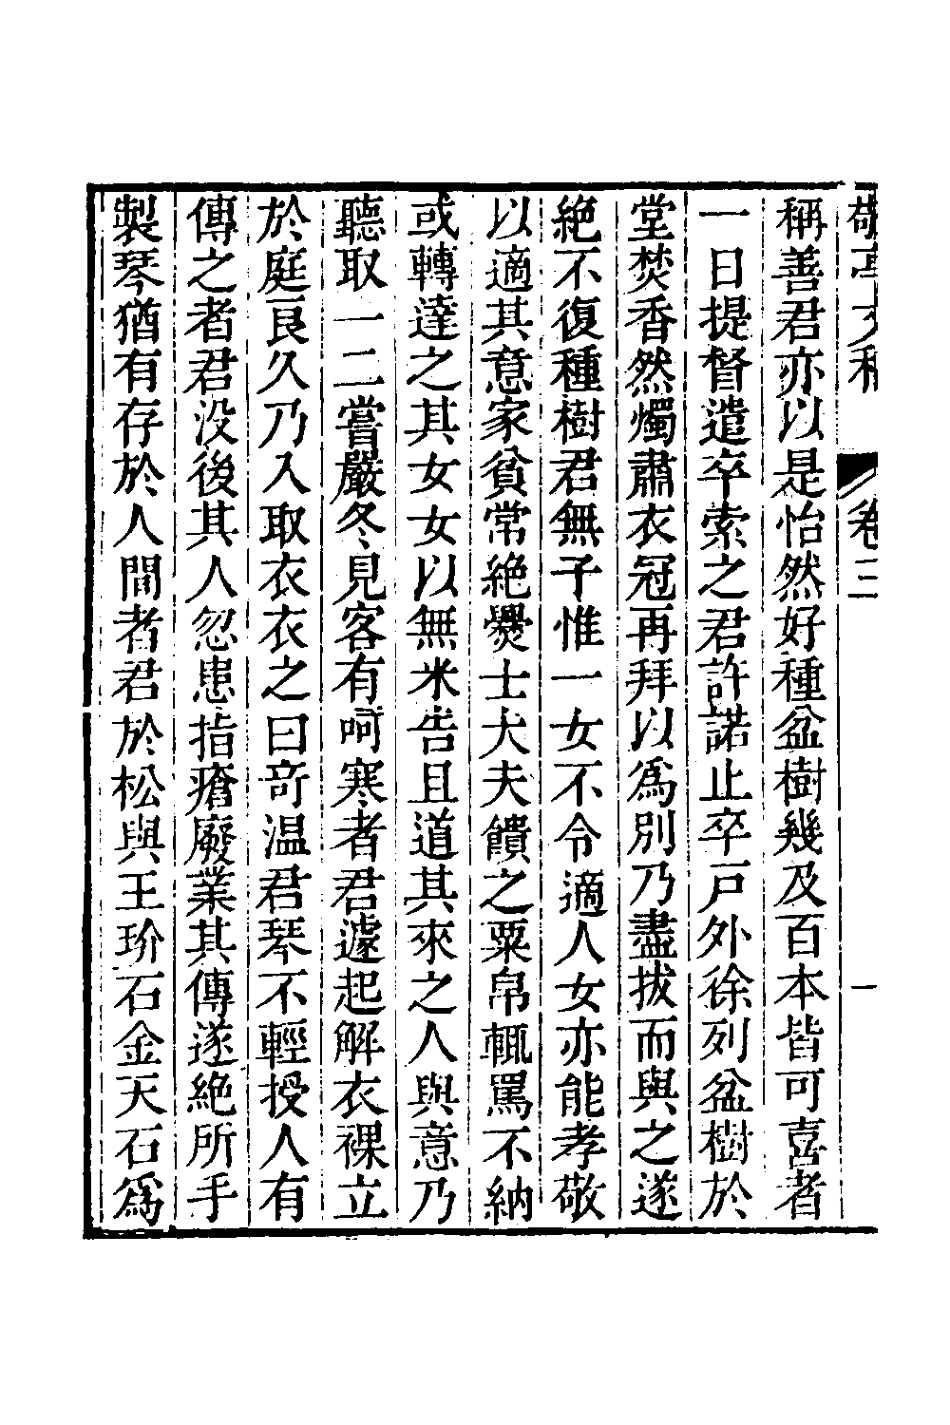 敬亭文稿 卷三 一
稱善君亦以是怡然好種盆樹幾及百本皆可喜者
一日提督遣卒索之君許諾止卒戸外徐列盆樹於
堂焚香然燭肅衣冠再拜以為別乃盡拔而與之遂
絶不復種樹君無子惟一女不令適人女亦能孝敬
以適其意家貧常絶爨士大夫饋之粟帛輒罵不納
或轉達之其女女以無米告且道其來之人與意乃
聽取一二嘗嚴冬見客有呵寒者君遽起解衣裸立
於庭良久乃入取衣衣之曰奇温君琴不輕授人有
傳之者君没後其人忽患指瘡廢業其傳遂絶所手
製琴猶有存於人間者君於松與王玠石金天石為